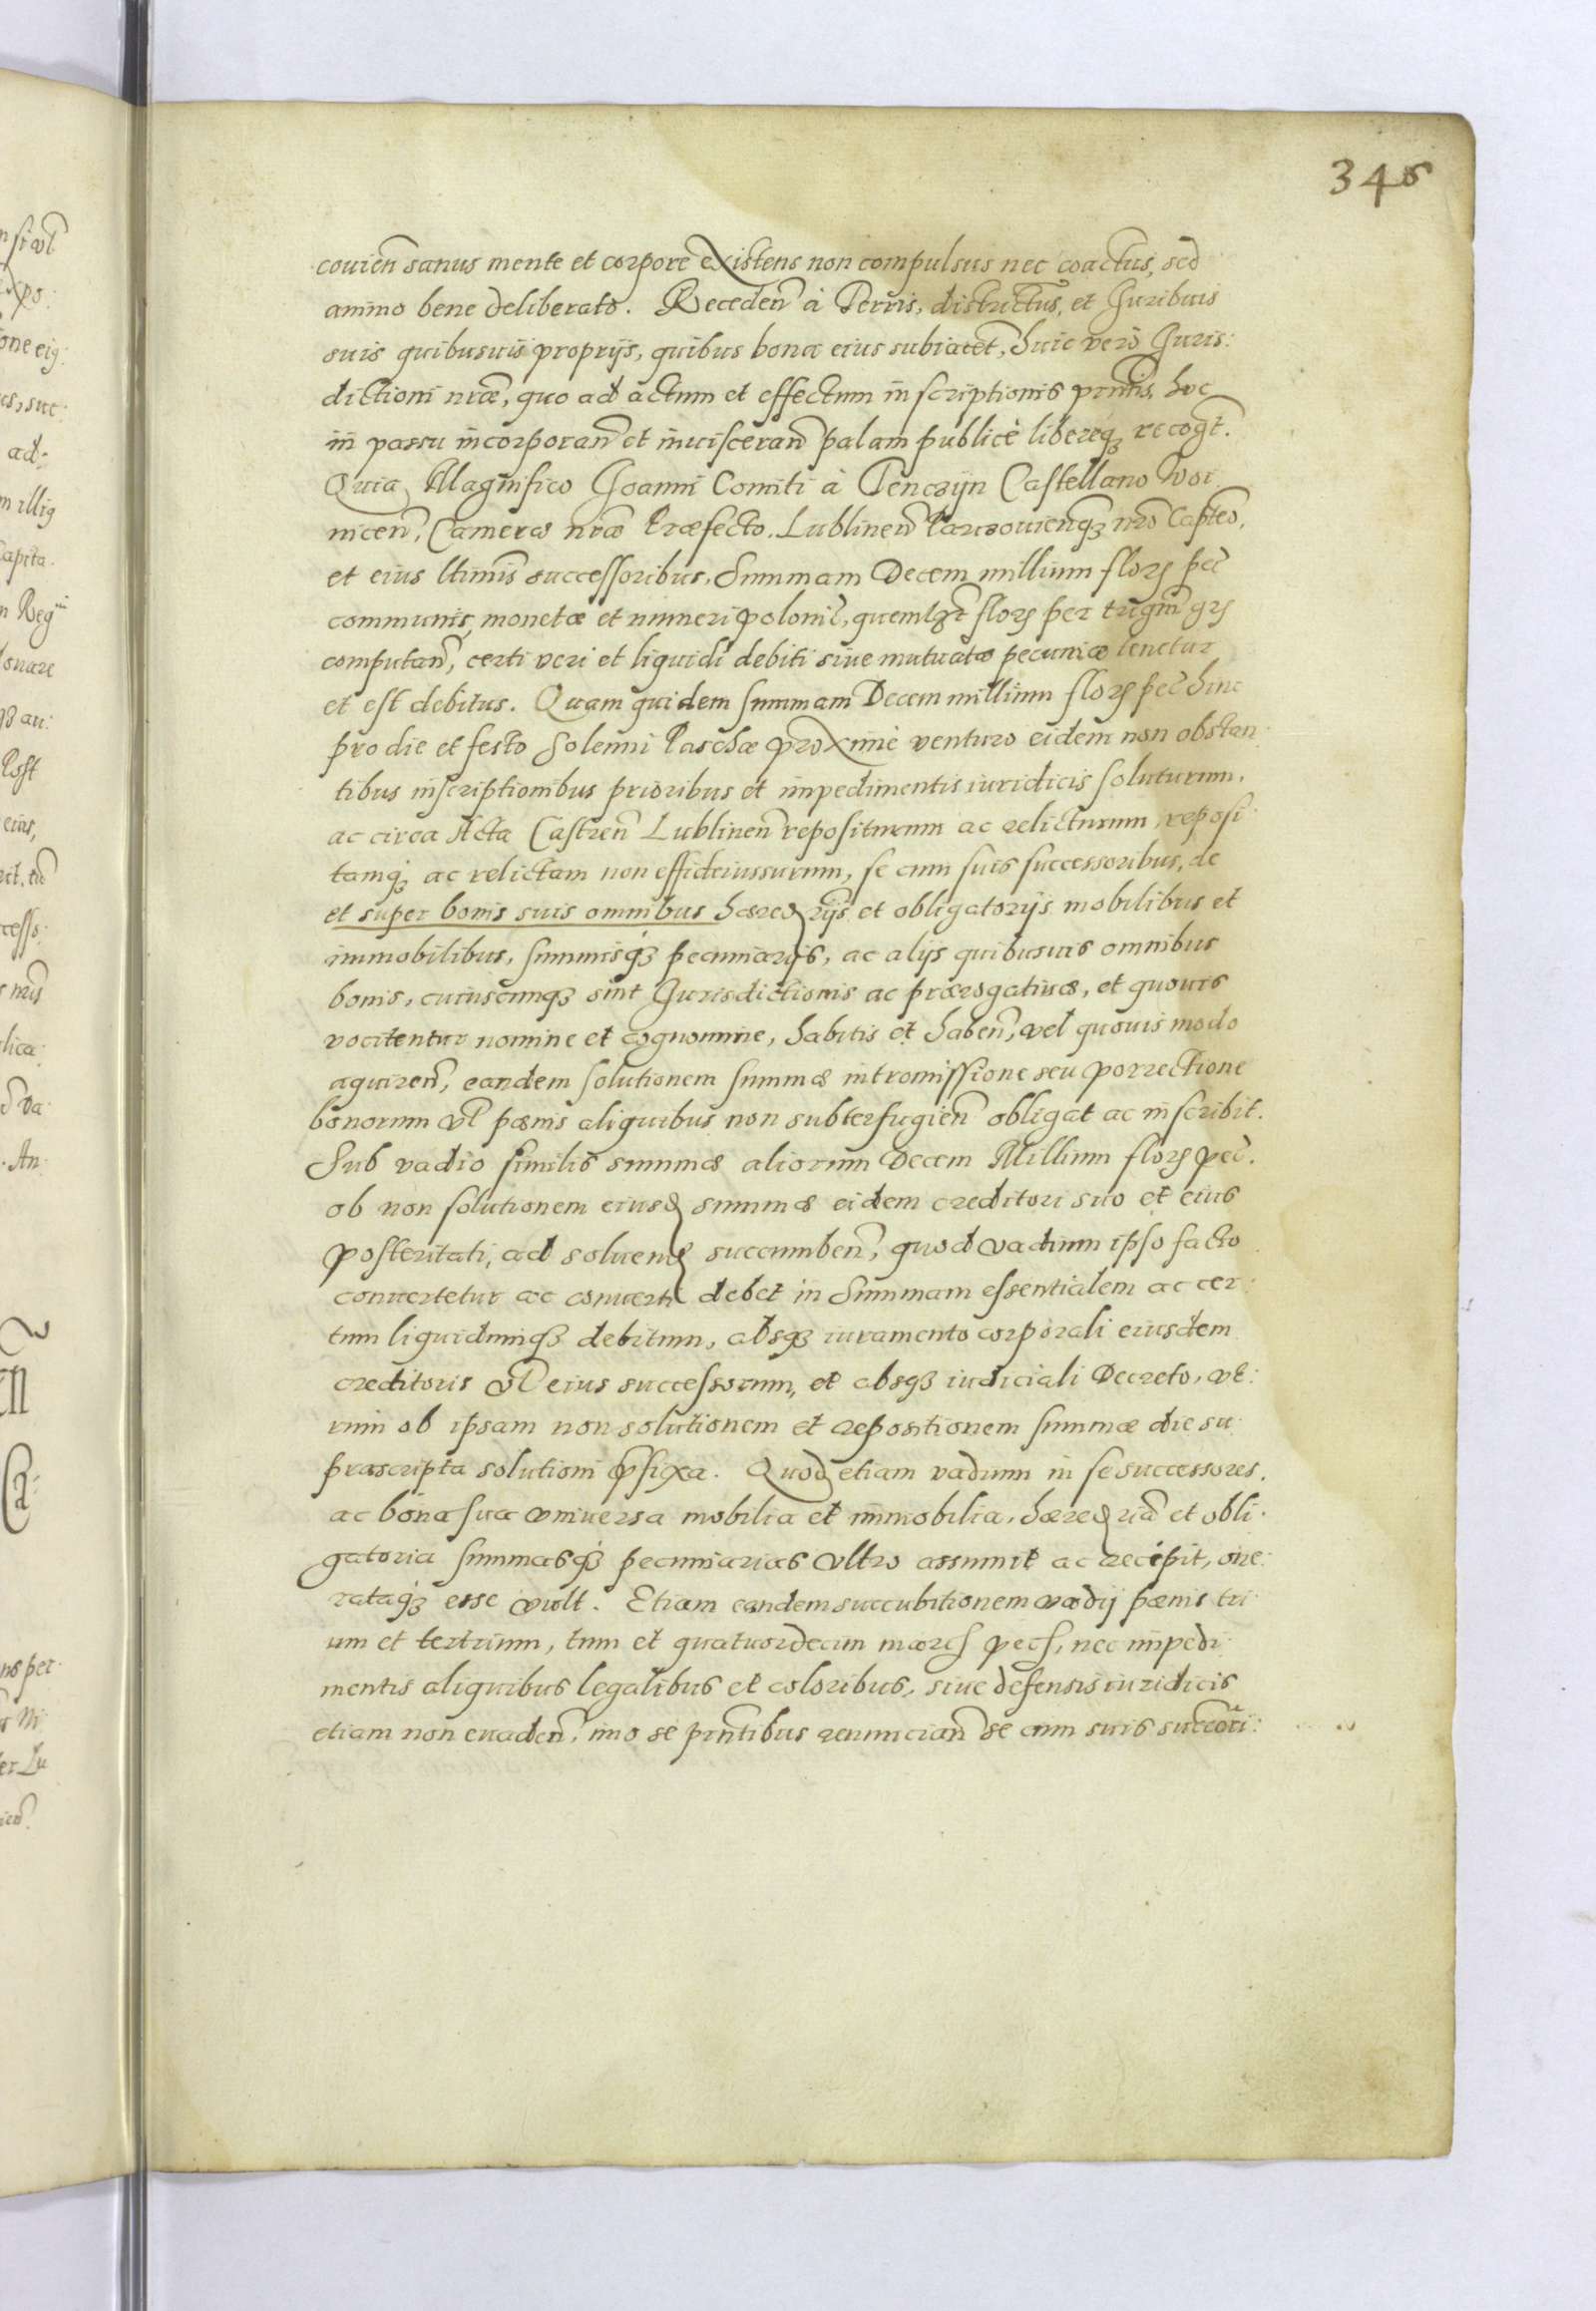 345
couien̄ sanus mente et corpore existens non compulsus nec coactus, sed
animo bene deliberato. Receden̄ à Terris, districtūs, et Juribuis
suis quibusuis proprijs, quibus bona eius subiacēt, huic verò Juris:
dictioni nrāe, quo ad actum et effectum inscriptionis pn̄tis, hoc
in passu incorporan̄ et inuisceran̄ palam publicè libereq3 recogt̄.
Quia Magnifico Joanni Comiti à Tenczijn Castellano Voi
nicen̄, Camerae nrāe Praefecto. Lublinen̄ Parczouienq3 nrō Capteō,
et eius ltimis successoribus, Summam Decem millium florȝ pec̄
communis, monetae et numeri polonic̄, quemlȝt flor̄ per trigin̄ grȝ
computan̄, certi veri et liquidi debiti siue mutuatae pecuniae tenetur
et est debitus. Quam quidem summam Decem millium florȝ pec̄ hinc
pro die et festo Solenni Paschae proximè venturo eidem non obstan
tibus inscriptionibus prioribus et impedimentis iuridicis soluturum,
ac circa Acta Castren̄ Lublinen̄ repositurum ac relicturum, reposi
tamq3 ac relictam non effideiussurum, se cum suis successoribus, de
et super bonis suis omnibus haeredrijs et obligatorijs mobilibus et
immobilibus, summisq3 pecuniarijs, ac alijs quibusuis omnibus
bonis, cuiuscunq3 sint Jurisdictionis ac praerogatiuae, et quouis
vocitentur nomine et cognomine, habitis et haben̄, vel quouis modo
aquiren̄, eandem solutionem summae intromissione seu porrectione
bonorum vl̄ paenis aliquibus non subterfugien̄ obligat ac inscribit.
Sub vadio similis summae aliorum Decem Millium florȝ pec̄.
ob non solutionem eiusd summae eidem creditori suo et eius
posteritati, ad soluend succumben̄, quod vadium ipso facto
conuertetur ac conuerti debet in Summam essentialem ac cer
tum liquidumq3 debitum, absq3 iuramento corporali eiusdem
creditoris vl̄ eius successorum, et absq3 iudiciali Decreto, ve:
rum ob ipsam non solutionem et repositionem summae die su
prascripta solutioni p̄fixa. Quod etiam vadium in se successores,
ac bona sua vniuersa mobilia et immobilia, haeredriā et obli
gatoria summasq3 pecuniarias vltro assumit ac recipit, one:
rataq3 esse vult. Etiam eandem succubitionem vadij paenis tri
um et tertrium, tum et quatuordecim marcȝ pecȝ, nec impedi
mentis aliquibus legalibus et coloribus, siue defensis iuridicis
etiam non euaden̄, imo se pn̄tibus renuncian̄ se cum suis succori: